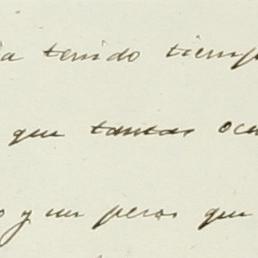 a tenido tiemp
que tantas ocu
y un peros que